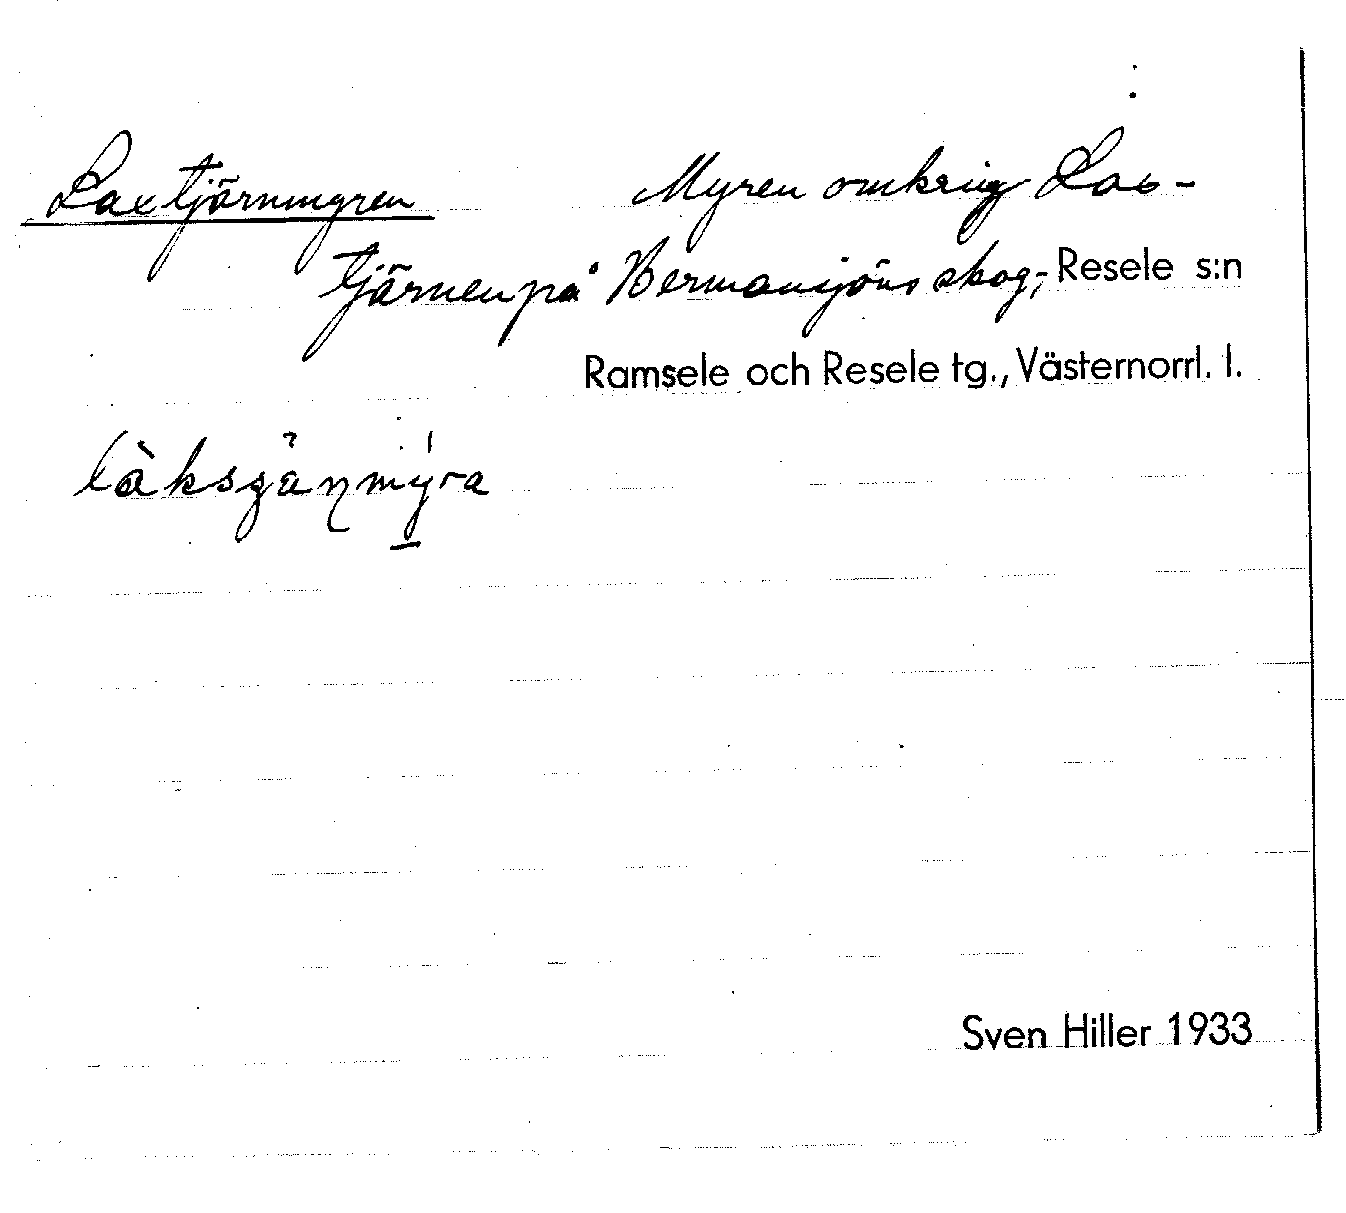 Laxtjärnmyren Myren omkring Lax-
tjärnen på Hermansjöns skog, Resele s:n
Ramsele och Resele tg., Västernorrl. l.
Sven Hiller 1933